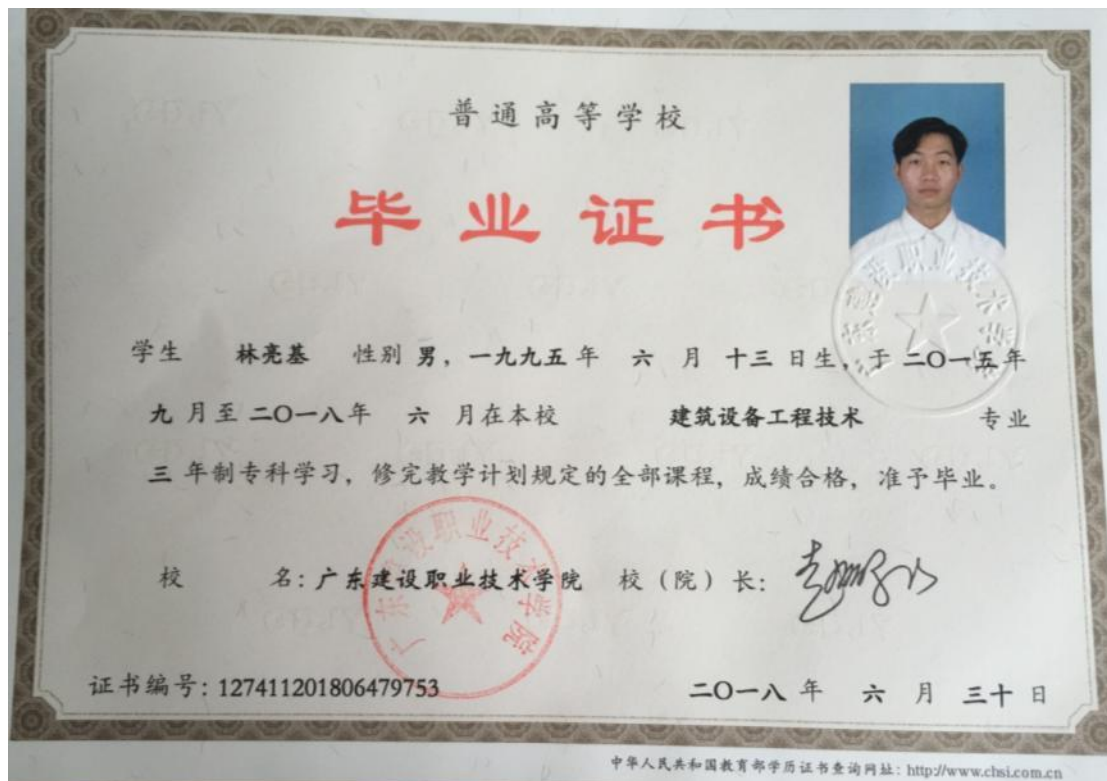 普通高等学校
毕业证书
学生 林亮基 性别 男，一九九五年 六 月 十三 日生，于 二〇一五年
九 月至 二〇一八年 六 月在本校 建筑设备工程技术 专业
三 年制专科学习，修完教学计划规定的全部课程，成绩合格，准予毕业。
校 名：广东建设职业技术学院 校（院）长：
广东建设职业技术学院
证书编号：127411201806479753 二〇一八 年 六 月 三十 日
中华人民共和国教育部学历证书查询网址：http://www.chsi.com.cn